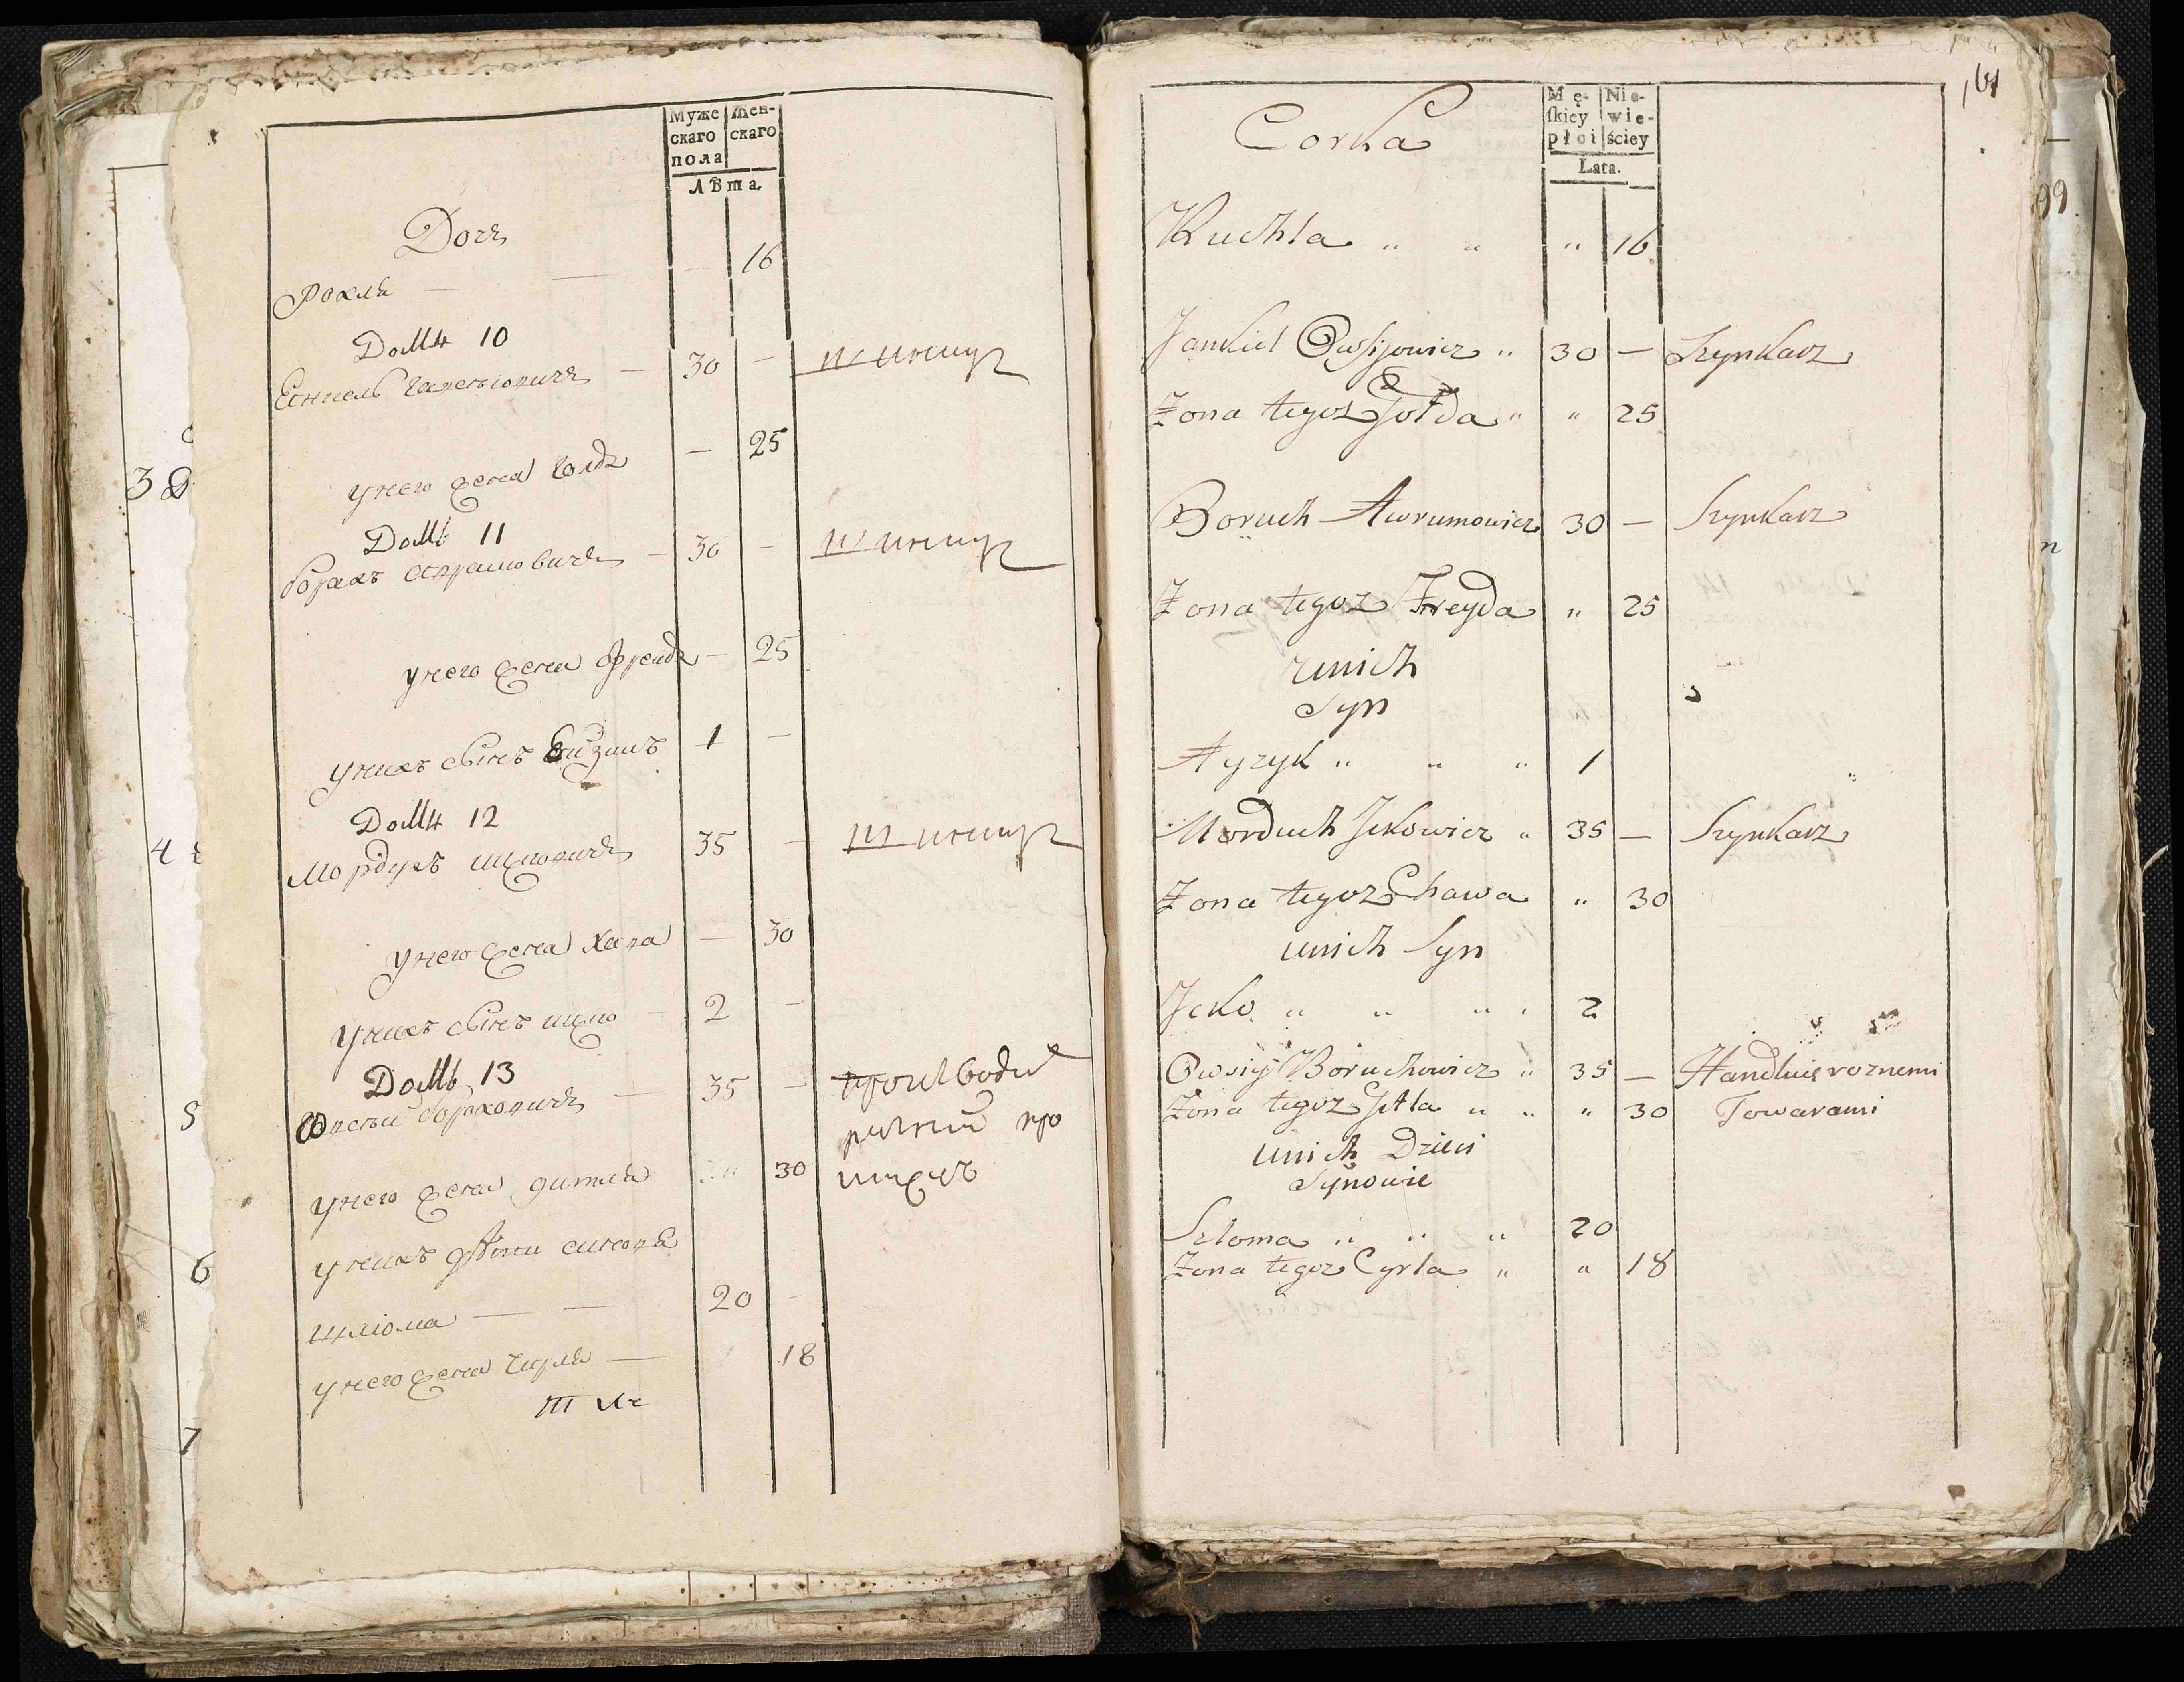 Муже Жен-
скаго скаго
пола
Лѣта.
Дочь
Рохля — — — 16
Домъ 10
30 — шинкуе
у него жена Голда — 25
Домъ 11
Борохъ Аврамовичъ — 30 — шинкуе
у него жена Фрейда — 25
у нихъ сынъ Айзикъ 1 —
Домъ 12
Мордухъ Ицковичъ 35 — шинкуе
у него жена Хава — 30
у нихъ сынъ Ицко — 2 —
Домъ 13
Овсей Бороховичъ — 35 — производит
разний про
у него жена 30 мыслъ
у нихъ дѣти синовя
Шліома — — 20 —
у него жена Цирля — 18
3
4
5
6
7
161
Mę- Nie-
skiey wie-
płci ściey
Lata.
Corka
Ruchla " " " 16
Jankiel Owsijowicz " 30 — Szynkarz
Zona tegoz Gołda " " 25
Boruch Awrumowicz 30 — Szynkarz
Zona tegoz Freyda " 25
unich
Syn
Ayzyk " " " 1
Morduch Jckowicz " 35 — Szynkarz
Zona tegoz Chawa " 30
unich Syn
Jcko " " " 2
Owsiy Boruchowicz " 35 — Handluie roznemi
Zona tegoz Jtla " " " 30 Towarami
unich Dzieci
Synowie
Szloma " " " 20
Zona tegoz Cyrla " " 18
99